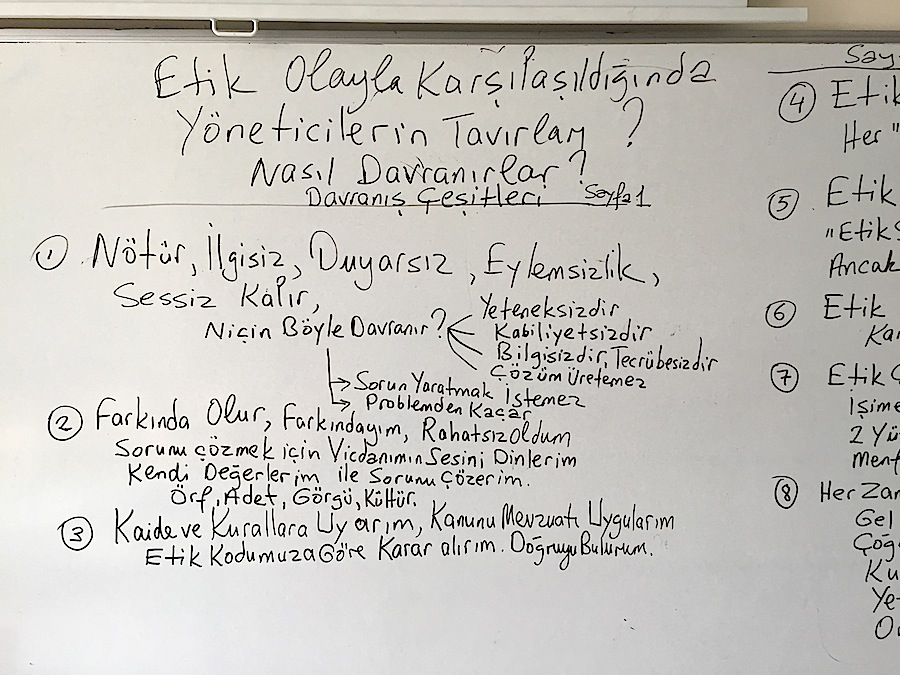 Etik Olayla Karşılaşıldığında
Yöneticilerin Tavırları ?
Nasıl Davranırlar?
Davranış Çeşitleri Sayfa 1
① Nötür, İlgisiz, Duyarsız, Eylemsizlik,
Sessiz Kalır,
Niçin Böyle Davranır?
Yeteneksizdir
Kabiliyetsizdir
Bilgisizdir, Tecrübesizdir
Çözüm Üretemez
Sorun Yaratmak İstemez
Problemden Kaçar
② Farkında Olur, Farkındayım, Rahatsız oldum
Sorunu çözmek için Vicdanımın Sesini Dinlerim
Kendi Değerlerim ile Sorunu Çözerim.
Örf, Adet, Görgü, Kültür.
③ Kaide ve Kurallara Uyarım, Kanunu Mevzuatı Uygularım
Etik Kodumuza Göre Karar alırım. Doğruyu Bulurum.
Say
④ Etik
Her "
⑤ Etik
"Etik S
Ancak
⑥ Etik
Ka
⑦ Etik Ç
İşime
2 Yü
Menf
⑧ Her Zam
Gel
Çoğ
Ku
Ye